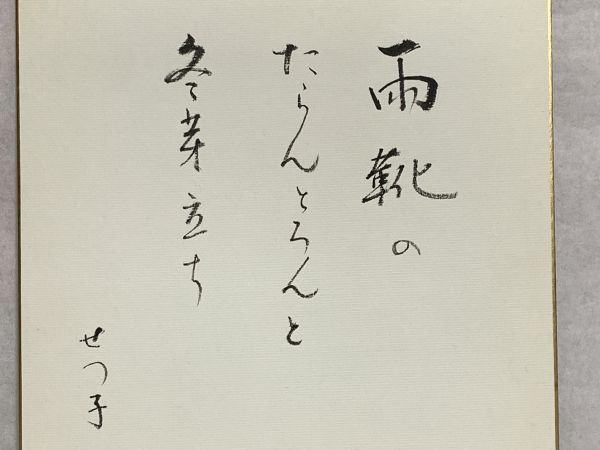 雨靴の
たらんとろんと
冬芽立ち
せつ子